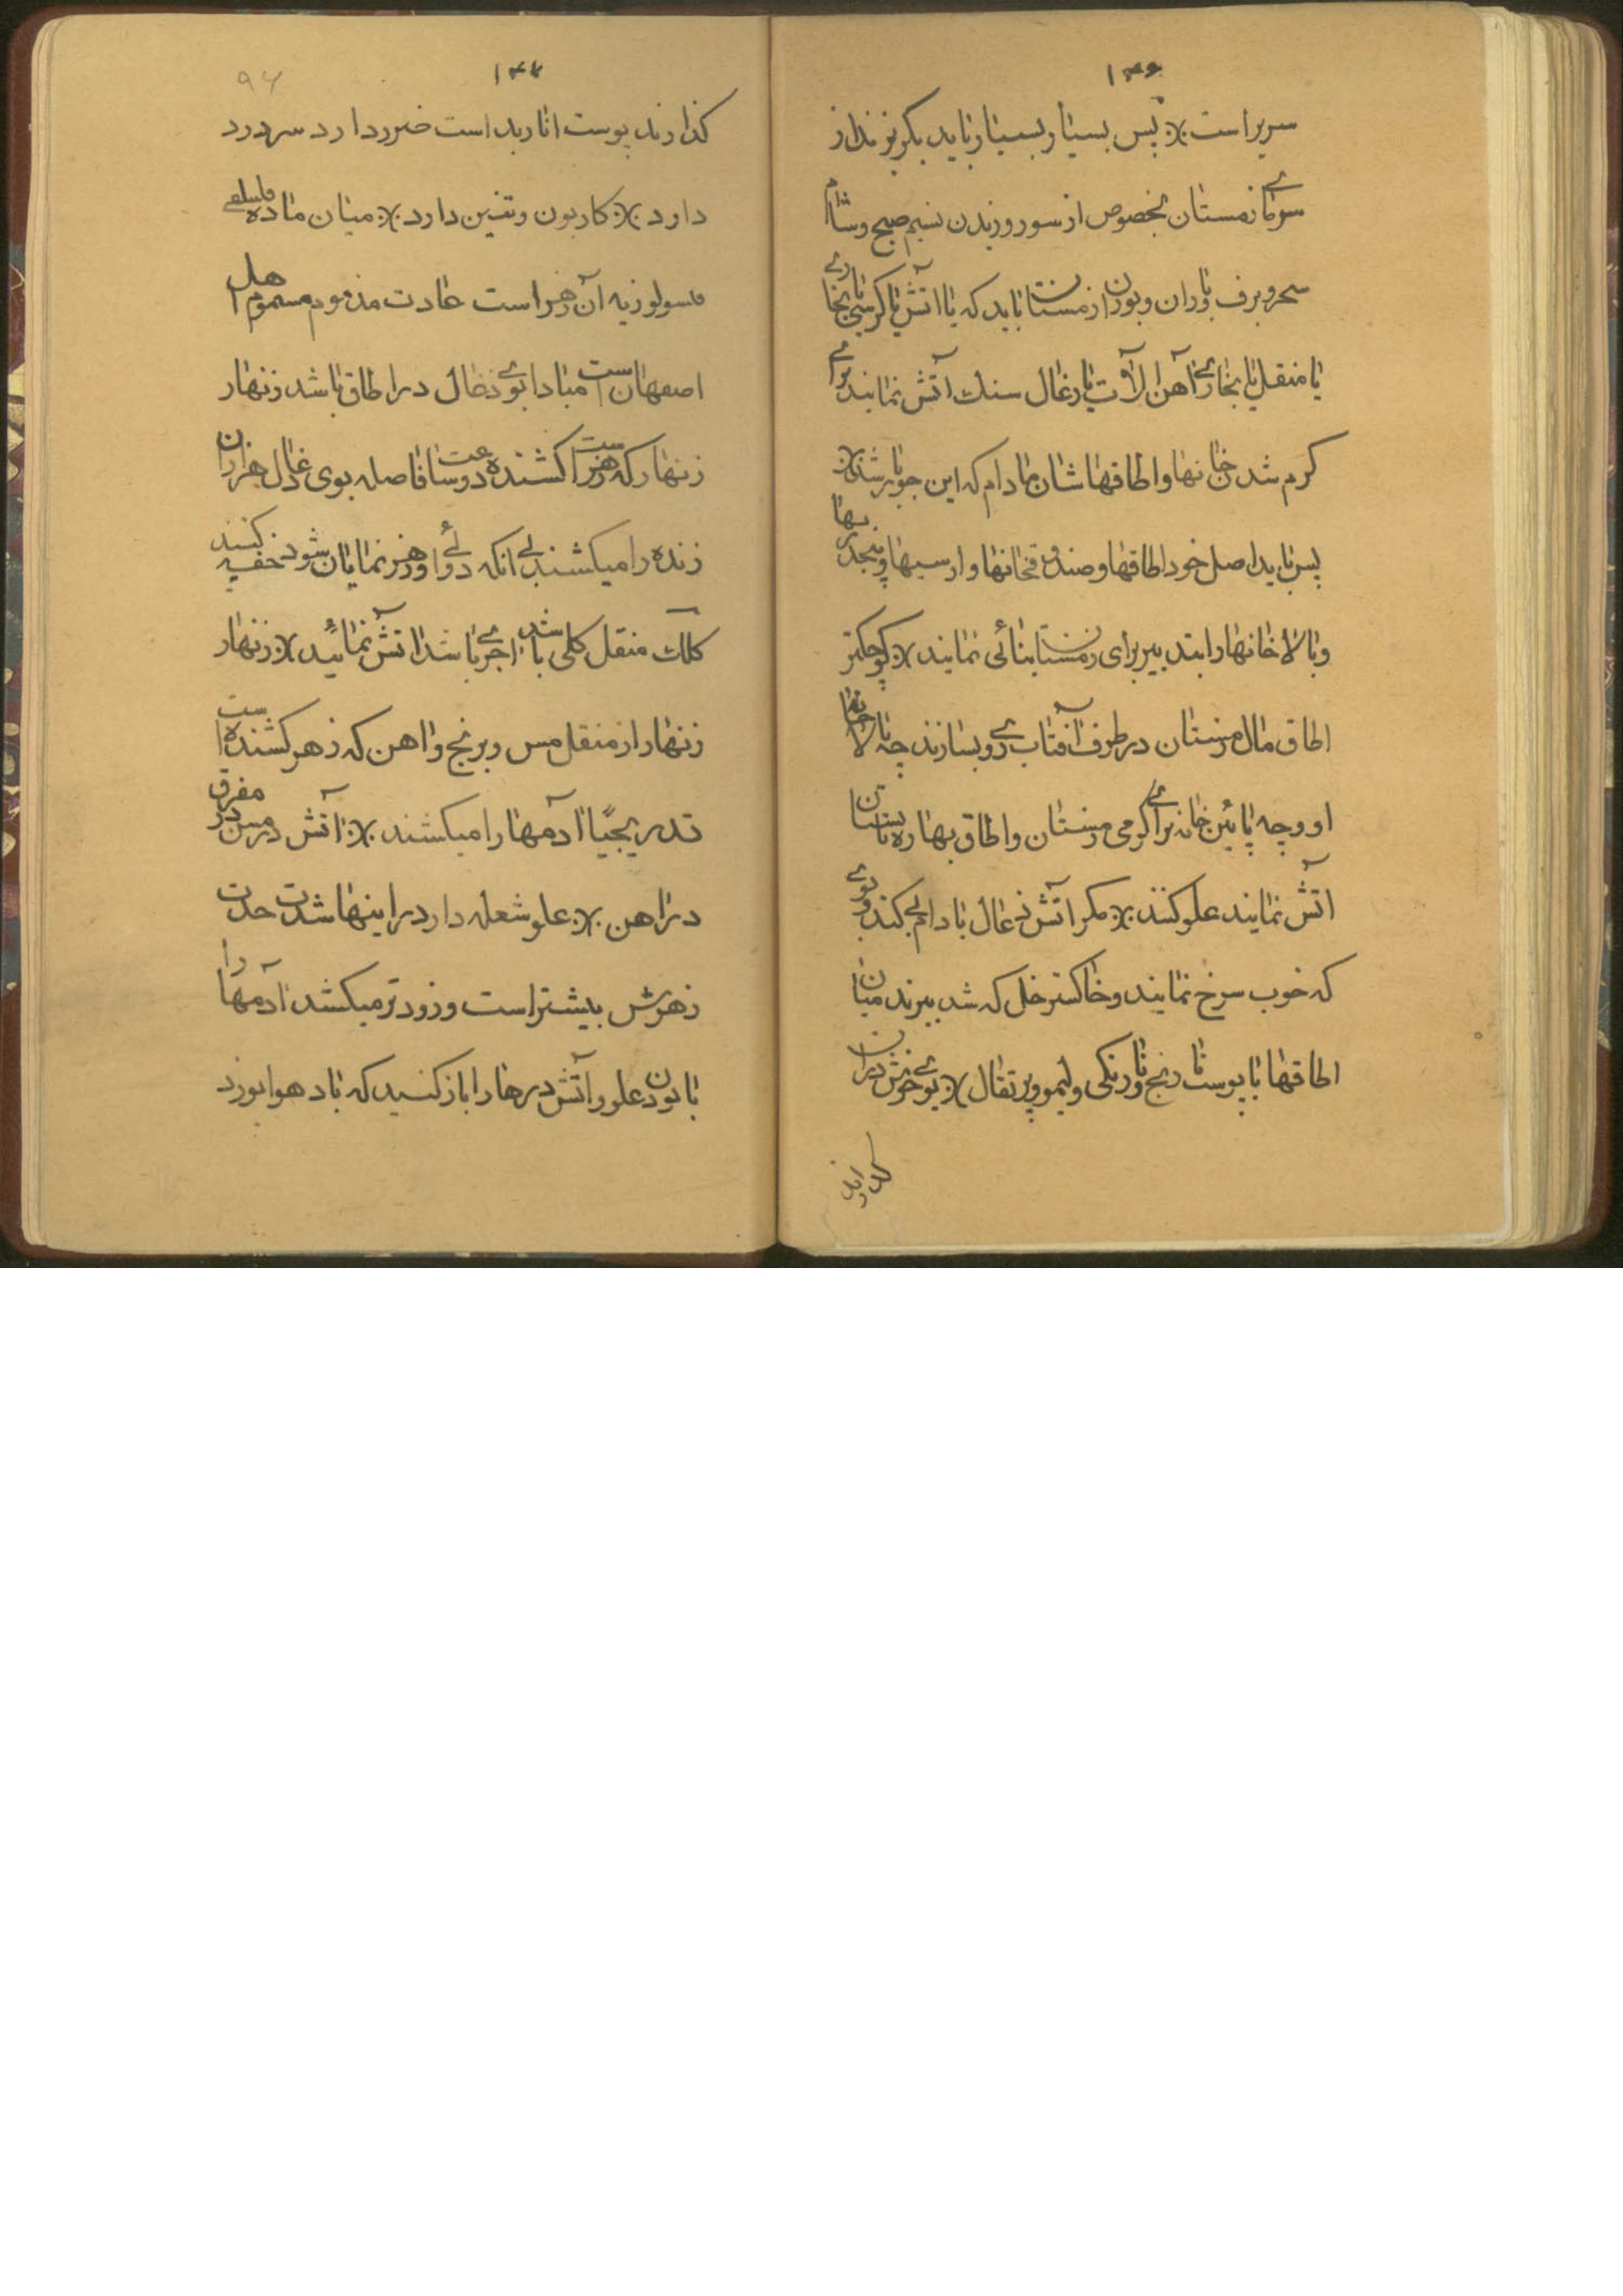 ۱۴۶
سریر است ※ پس بسیار و بسیار باید بگریزند از
سرمای زمستان بخصوص از سوز وزیدن نسیم صبح و شام
سحر و برف و باران و بوران زمستان باید که یا آتش یا کرسی یا بخاری
یا منقل یا بخاری آهن آلات یا زغال سنگ آتش نمایند برای
گرم شدن خانها و اطاقهاشان مادام که این جو باشد ※
پس باید اصل خود اطاقها و صندوقخانها و ارسیها و پنجدریها
و بالاخانها را بتدبیر برای زمستان بنائی نمایند ※ کوچکتر
اطاق مال زمستان در طرف آفتاب روی بسازند چه بالاخانه
او و چه پائین خانه برای گرمی زمستان و اطاق بهاره تابستان
آتش نمایند علو کنند ※ مگر آتش زغال بادام کنند و بوی
که خوب سرخ نمایند و خاکستر خل که شد ببرند میان
اطاقها با پوست نارنج و نارنگی و لیمو و پرتقال ※ بوی خوش در آن
گذارند
۱۴۷
گذارند پوست انار بد است ضرر دارد سر درد
دارد ※ کاربون و تنین دارد ※ میان ماده
آن زهر است عادت مذموم مسموم اهل
اصفهان است مبادا بوی زغال در اطاق باشد زنهار
زنهار که زهر است کشنده دو ساعت فاصله بوی زغال هزاران
زنده را میکشند بی آنکه دوائی او زهر نمایان شود خفیه کنند
کلک منقل گلی باشد آجری باشد آتش نمائید ※ زنهار
زنهار از منقل مس و برنج و آهن که زهر کشنده است
تدریجیاً آدمها را میکشند ※ آتش در مس در مفرق
در آهن ※ علو شعله دارد در اینها شدت حدت
زهرش بیشتر است و زودتر میکشد آدمها را
با بودن علو و آتش درها را باز کنید که باد هوا بوزد